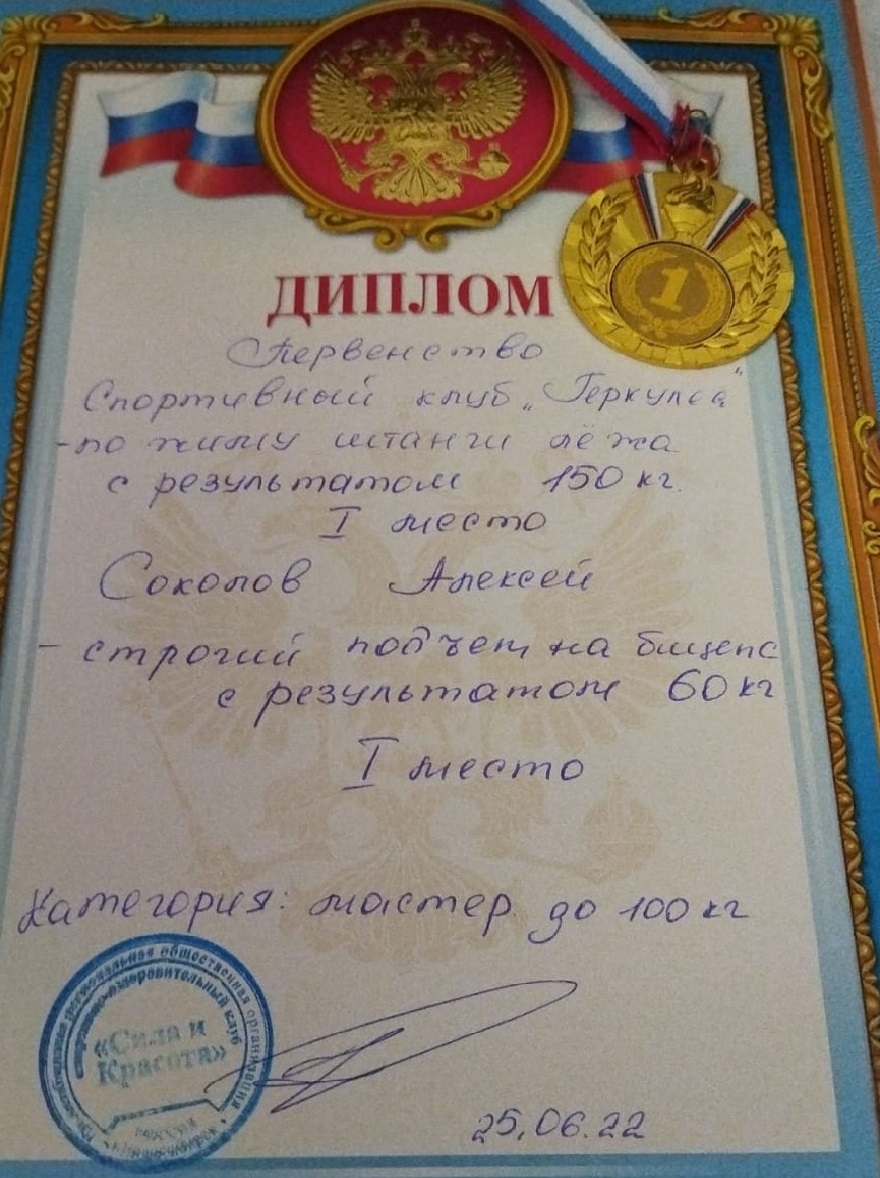 1
ДИПЛОМ
Первенство
Спортивный клуб „Геркулес"
-по жиму штанги лёжа
с результатом 150 кг.
I место
Соколов Алексей
- строгий подъем на бицепс
с результатом 60 кг
I место
Категория: мастер до 100 кг
региональная общественная организация
спортивно-оздоровительный клуб
«Сила и
Красота»
25.06.22